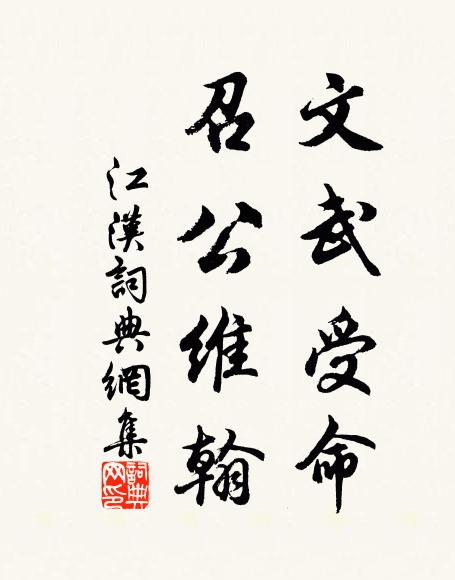 文武受命
召公維翰
江漢詞典網集
詞典网印